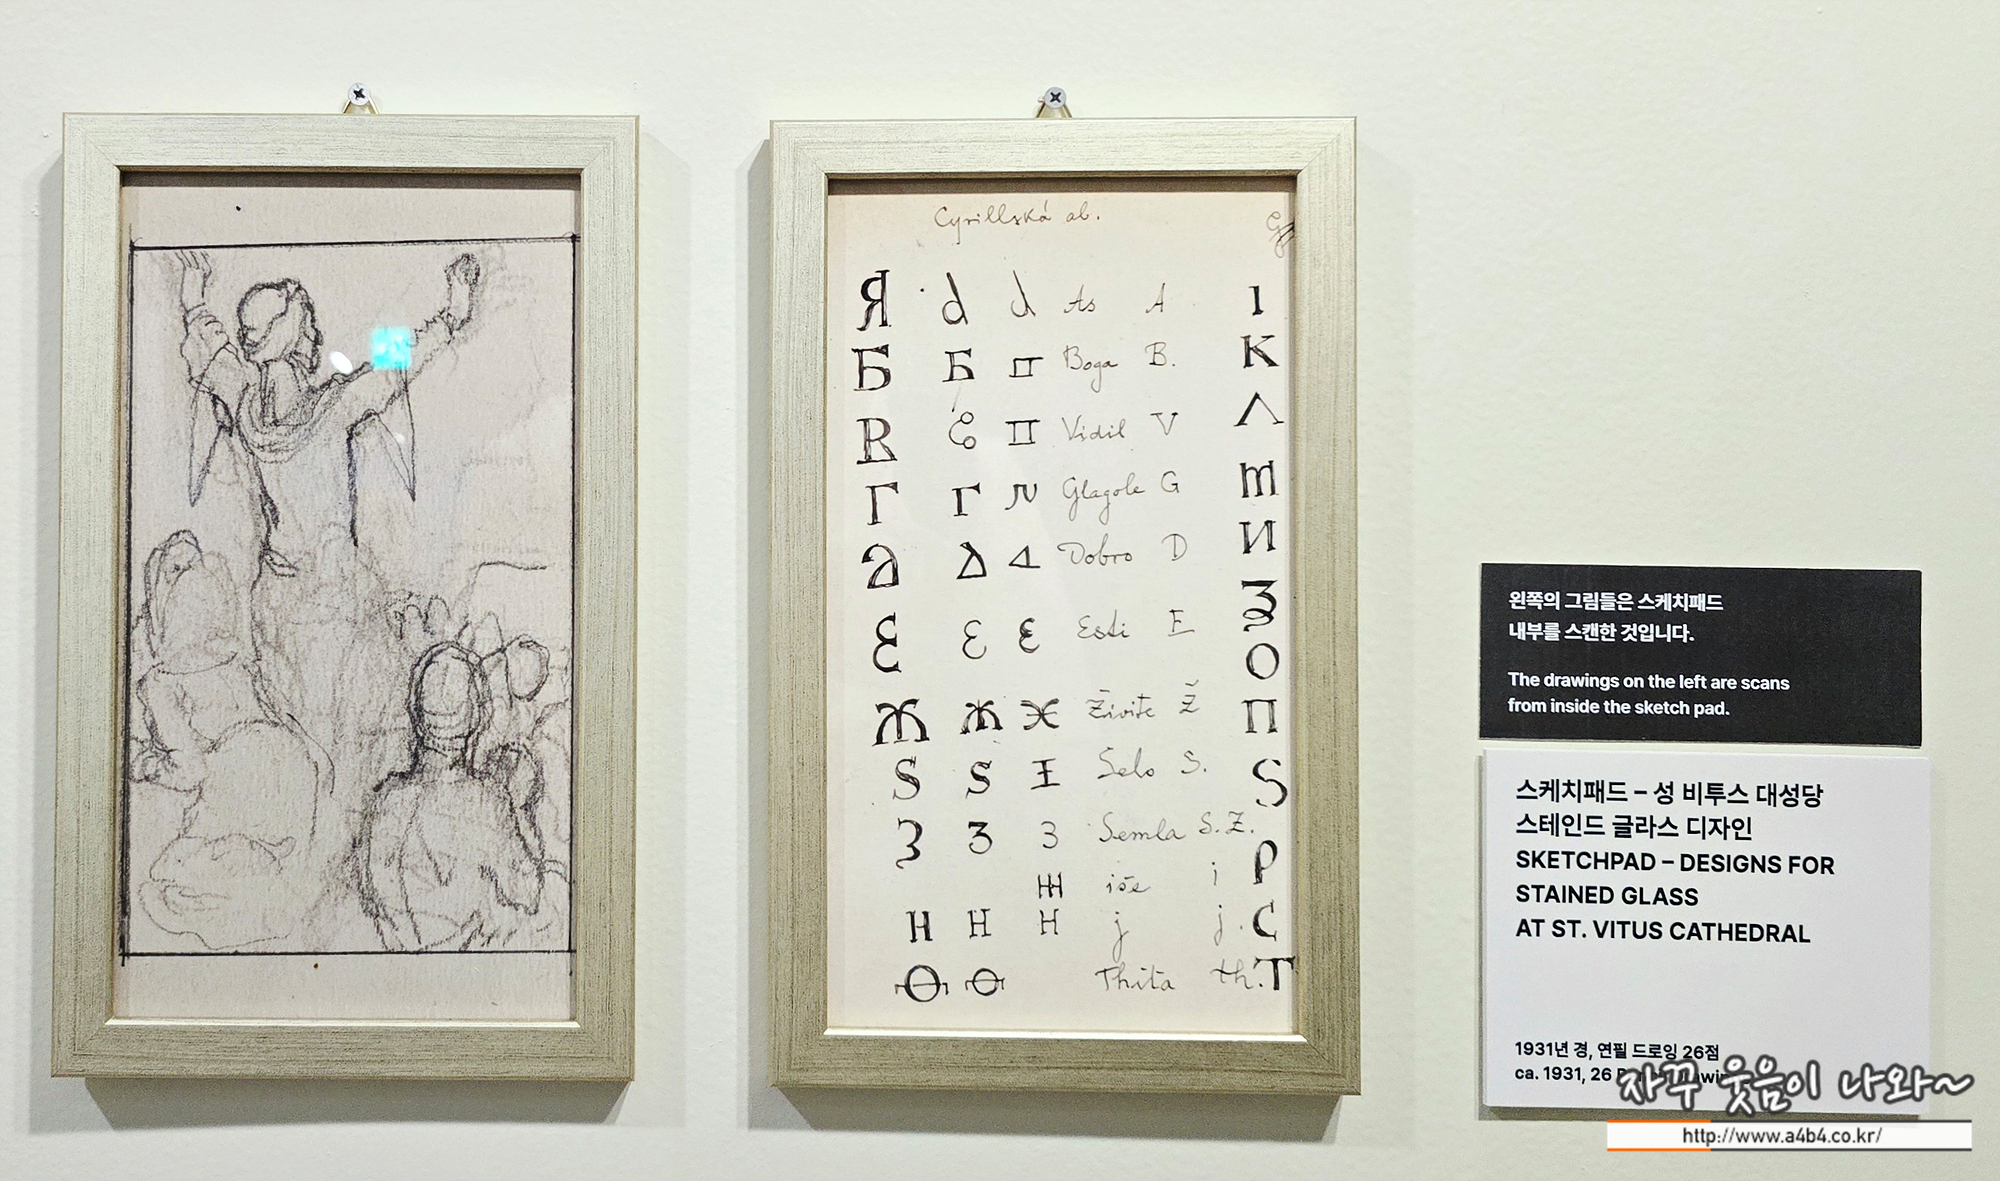 Cyrillská ab.
Я d d As A 1
Б Б Boga B. K
R Vidil V Λ
Г Г Glagole G m
Д Δ Dobro D И
Ɛ Ɛ Ɛ Esti E З
Ж Ж Ж Živite Ž О
S S Selo S. П
З З З Semla S. Z. S
iše i Р
H H H j j. С
Ѳ Ѳ Thita th. Т
왼쪽의 그림들은 스케치패드
내부를 스캔한 것입니다.
The drawings on the left are scans
from inside the sketch pad.
스케치패드 – 성 비투스 대성당
스테인드 글라스 디자인
SKETCHPAD – DESIGNS FOR
STAINED GLASS
AT ST. VITUS CATHEDRAL
1931년 경, 연필 드로잉 26점
ca. 1931, 26
자꾸 웃음이 나와~
http://www.a4b4.co.kr/